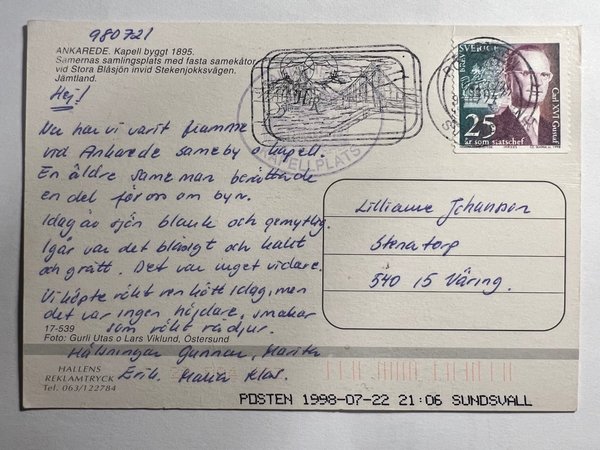 980721
ANKAREDE. Kapell byggt 1895.
Samernas samlingsplats med fasta samekåtor
vid Stora Blåsjön invid Stekenjokksvägen.
Jämtland.
Hej!
Nu har vi varit framme
vid Ankarede sameby o kapell.
En äldre same man berättade
en del för oss om byn.
Idag är sjön blank och gemytlig.
Igår var det blåsigt och kallt
och grått. Det var inget vidare.
Vi köpte rökt ren kött idag, men
det var ingen höjdare, smakar
som rökt rådjur.
17-539
Foto: Gurli Utas o Lars Viklund, Östersund
Hälsningar Gunnar, Marita
Erik, Maria Klas.
HALLENS
REKLAMTRYCK
Tel. 063/122784
KAPELLPLATS
SVERIGE
Carl XVI Gustaf
25
år som statschef
Lillianne Johansson
Stenatorp
540 15 Väring.
POSTEN 1998-07-22 21:06 SUNDSVALL